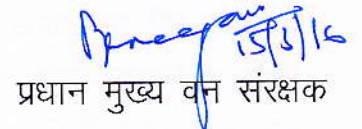 15/3/16
प्रधान मुख्य वन संरक्षक